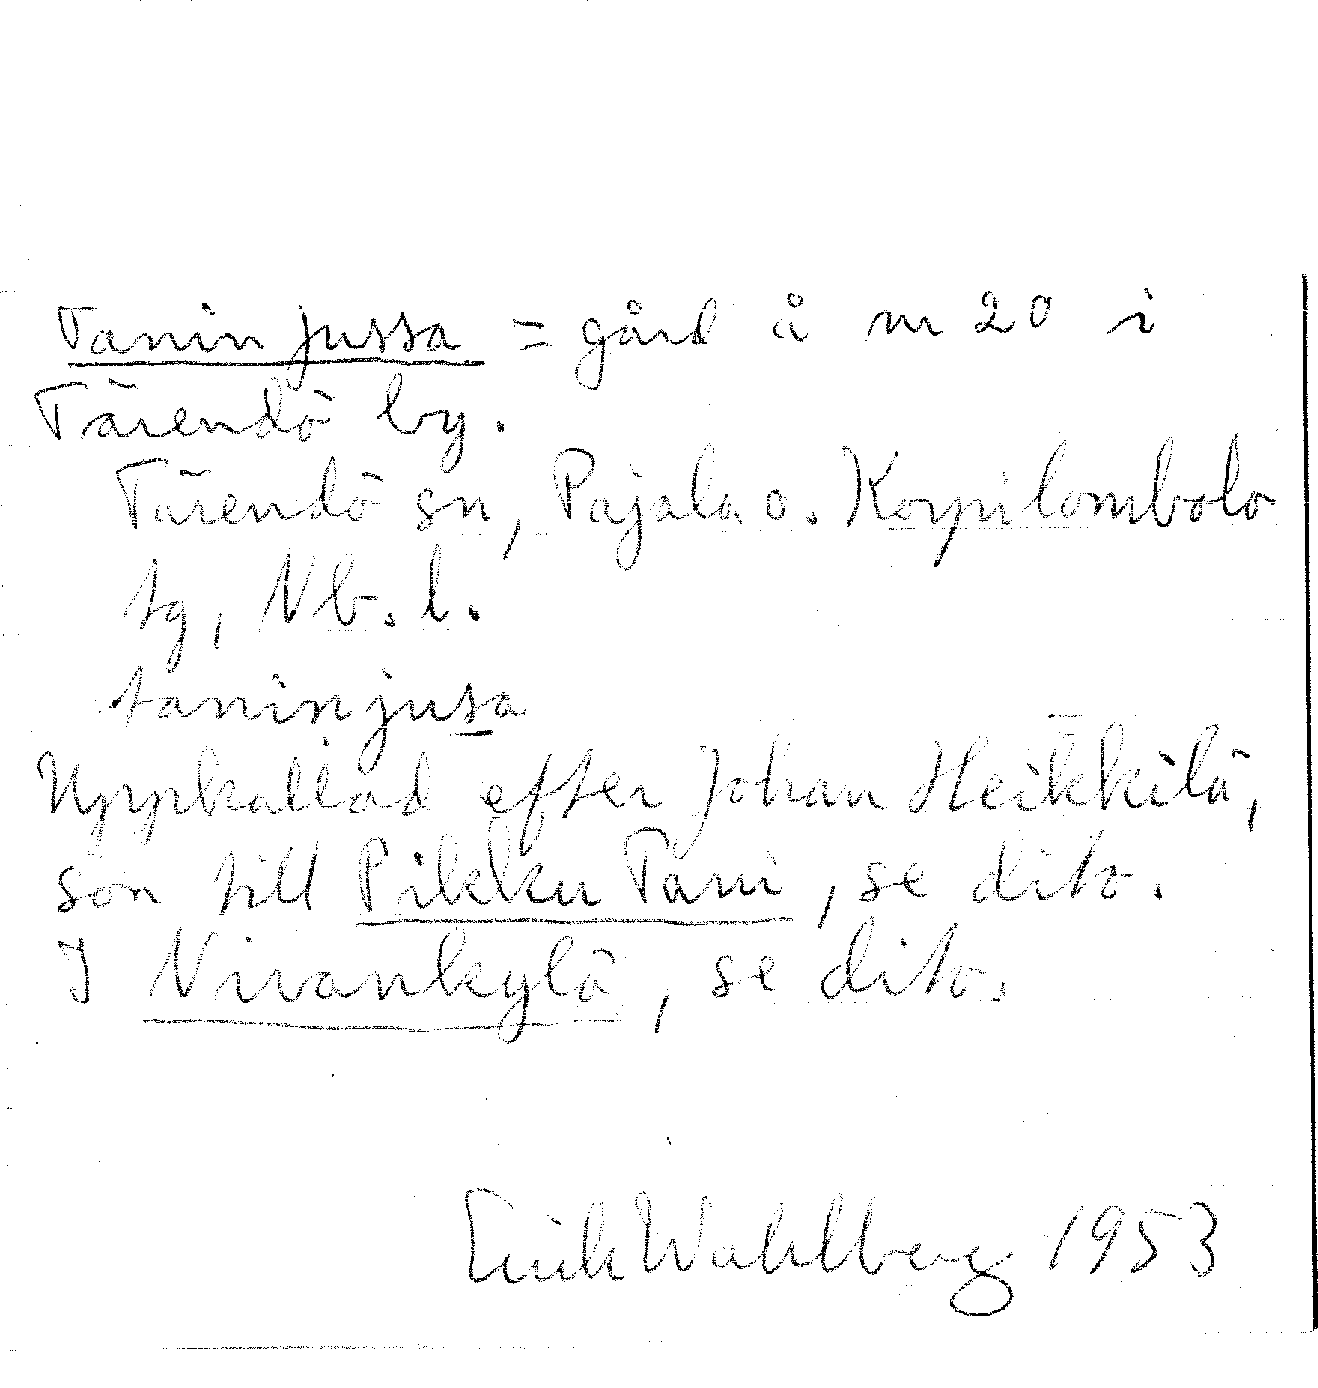 Taninjussa = gård å nr 20 i
Tärendö by.
Tärendö sn, Pajala o. Korpilombolo
tg, Nb. l.
taninjusa
Uppkallad efter Johan Heikkilä,
son till Pikku Tani, se dito.
I Nivankylä, se dito.
Erik Wahlberg 1953